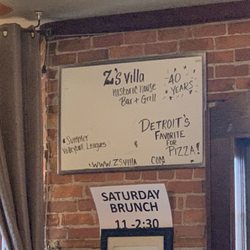 Z's Villa
Historic House
Bar + Grill
40
YEARS
DETROIT'S
FAVORITE
FOR
PIZZA!
Summer
Volleyball Leagues
WWW.ZSVILLA COM
SATURDAY
BRUNCH
11-2:30